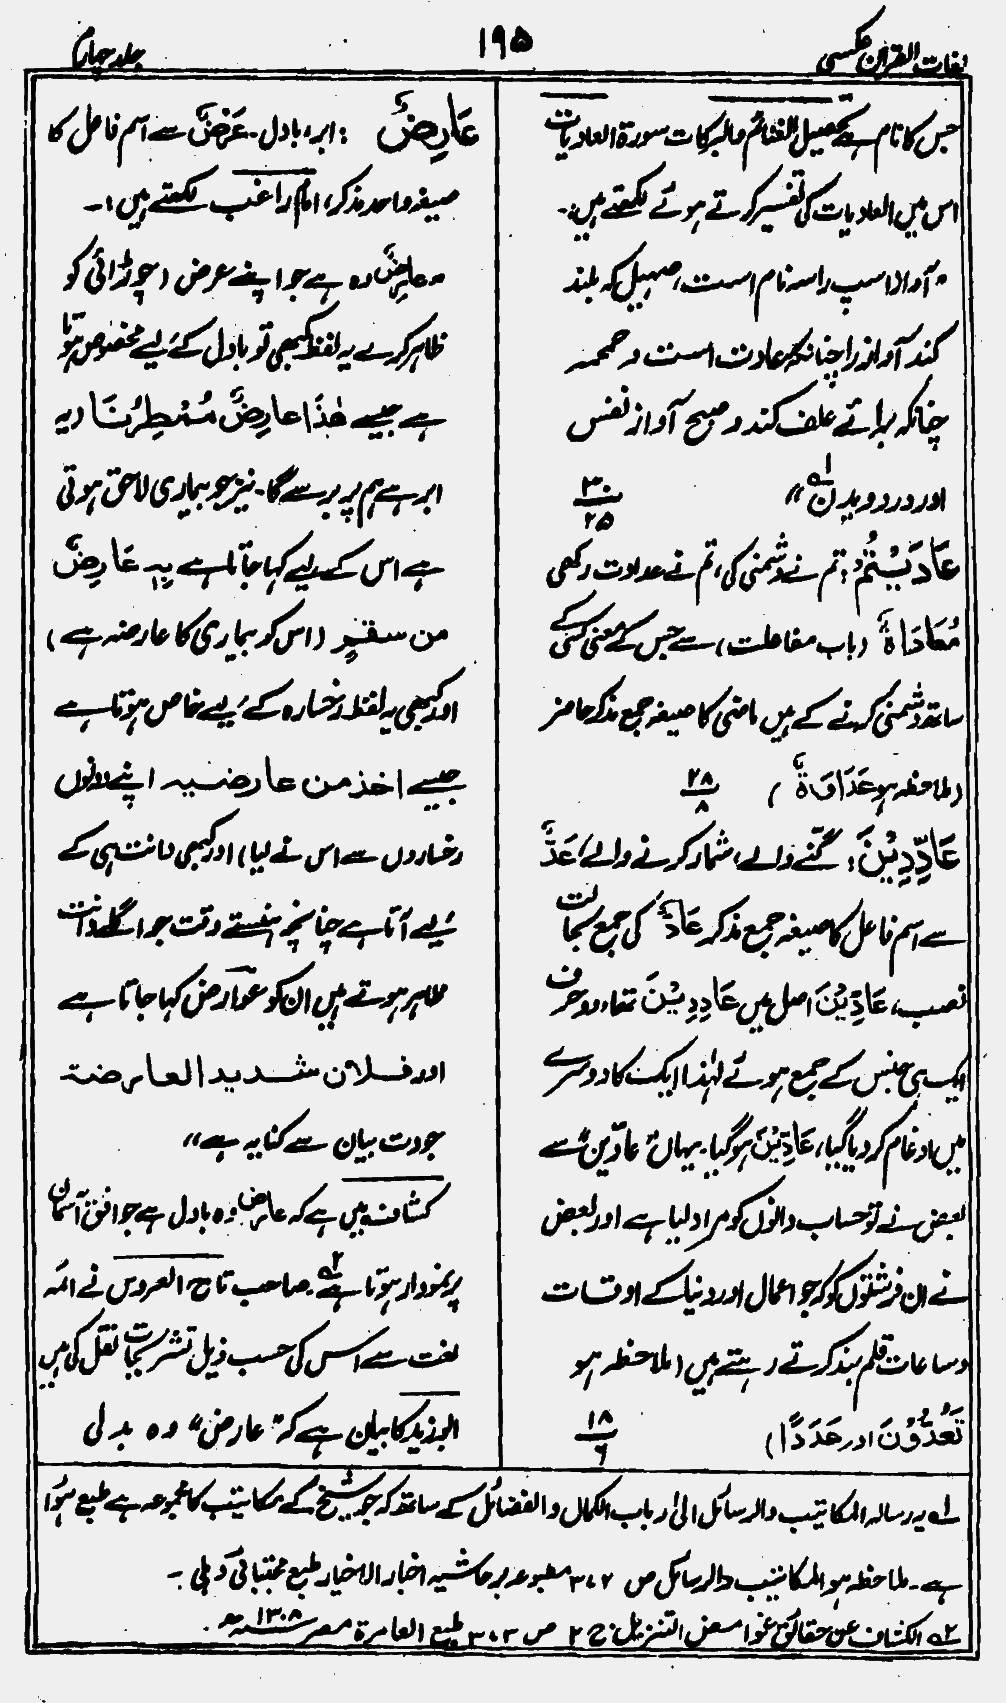 لغات القرآن عکسی
۱۹۵
جلد چہارم
جس کا نام ہے تحصیل الغنائم والبرکات سورۃ العادیات
اس میں العادیات کی تفسیر کرتے ہوئے لکھتے ہیں:۔
"آواز اسپ را سہ نام است، صہیل کہ بلند
کند آواز را چنانکہ عادت است و حمحمہ
چنانکہ برائے علف کند و صبح آواز نفس
او در دویدن" ۱ھ ۳۰/۲۵
عَادَيْتُمْ: تم نے دشمنی کی، تم نے عداوت رکھی
مُعَادَاةٌ (باب مفاعلت) سے جس کے معنی کسی کے
ساتھ دشمنی کرنے کے ہیں ماضی کا صیغہ جمع مذکر حاضر
(ملاحظہ ہو عَدَاوَةٌ) ۲۸/۸
عَادِّيْنَ: گننے والے، شمار کرنے والے، عَدٌّ
سے اسم فاعل کا صیغہ جمع مذکر عَادٌّ کی جمع بحالت
نصب، عَادِّيْنَ اصل میں عَادِدِيْنَ تھا، دو حرف
ایک ہی جنس کے جمع ہوئے لہٰذا ایک کا دوسرے
میں ادغام کر دیا گیا، عَادِّيْنَ ہو گیا۔ یہاں "عادّین" سے
بعض نے تو حساب دانوں کو مراد لیا ہے اور بعض
نے ان فرشتوں کو کہ جو اعمال اور دنیا کے اوقات
و ساعات قلم بند کرتے رہتے ہیں (ملاحظہ ہو
تَعُدُّوْنَ اور عَدَدًا) ۱۸/۶
عَارِضٌ: ابر، بادل۔ عَرْضٌ سے اسم فاعل کا
صیغہ واحد مذکر، امام راغب لکھتے ہیں:۔
"عارِضٌ وہ ہے جو اپنے عرض (چوڑائی کو
ظاہر کرے یہ لفظ کبھی تو بادل کے لیے مخصوص ہوتا
ہے جیسے هٰذَا عَارِضٌ مُّمْطِرُنَا (یہ
ابر ہے ہم پر برسے گا۔ نیز جو بیماری لاحق ہوتی
ہے اس کے لیے کہا جاتا ہے بہ عَارِضٌ
من سقمٍ (اس کو بیماری کا عارضہ ہے)
اور کبھی یہ لفظ رخسارہ کے لیے خاص ہوتا ہے
جیسے اخذ من عارضیہ اپنے دونوں
رخساروں سے اس نے لیا) اور کبھی دانت ہی کے
لیے آتا ہے چنانچہ ہنستے وقت جو اگلے دانت
ظاہر ہوتے ہیں ان کو عوارض کہا جاتا ہے
اور فلان شدید العارضۃ
جودت بیان سے کنایہ ہے"
کشاف میں ہے کہ عارض وہ بادل ہے جو افق آسمان
پر نمودار ہوتا ہے ۲ھ۔ صاحب تاج العروس نے ائمہ
لغت سے اس کی حسب ذیل تشریحات نقل کی ہیں
ابو زید کا بیان ہے کہ "عارض" وہ بدلی
۱ھ یہ رسالہ المکاتیب والرسائل الیٰ ارباب الکمال والفضائل کے ساتھ کہ جو شیخ کے مکاتیب کا مجموعہ ہے طبع ہوا
ہے۔ ملاحظہ ہو المکاتیب والرسائل ص ۳۰۷ مطبوعہ برحاشیہ اخبار الاخیار طبع مجتبائی دہلی۔
۲ھ الکشاف عن حقائق غوامض التنزیل: ج ۲ ص ۳۰۳ طبع العامرۃ مصر سنہ ۱۳۰۸ھ